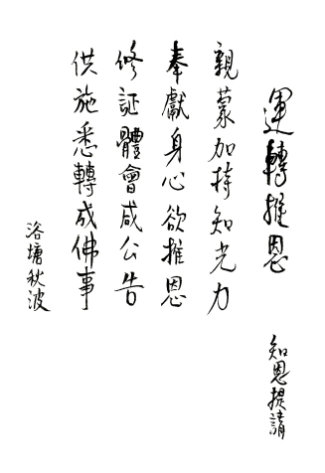 運轉推恩
知恩提請
親蒙加持知光力
奉獻身心欲推恩
修証體會咸公告
供施悉轉成佛事
洛塘秋波